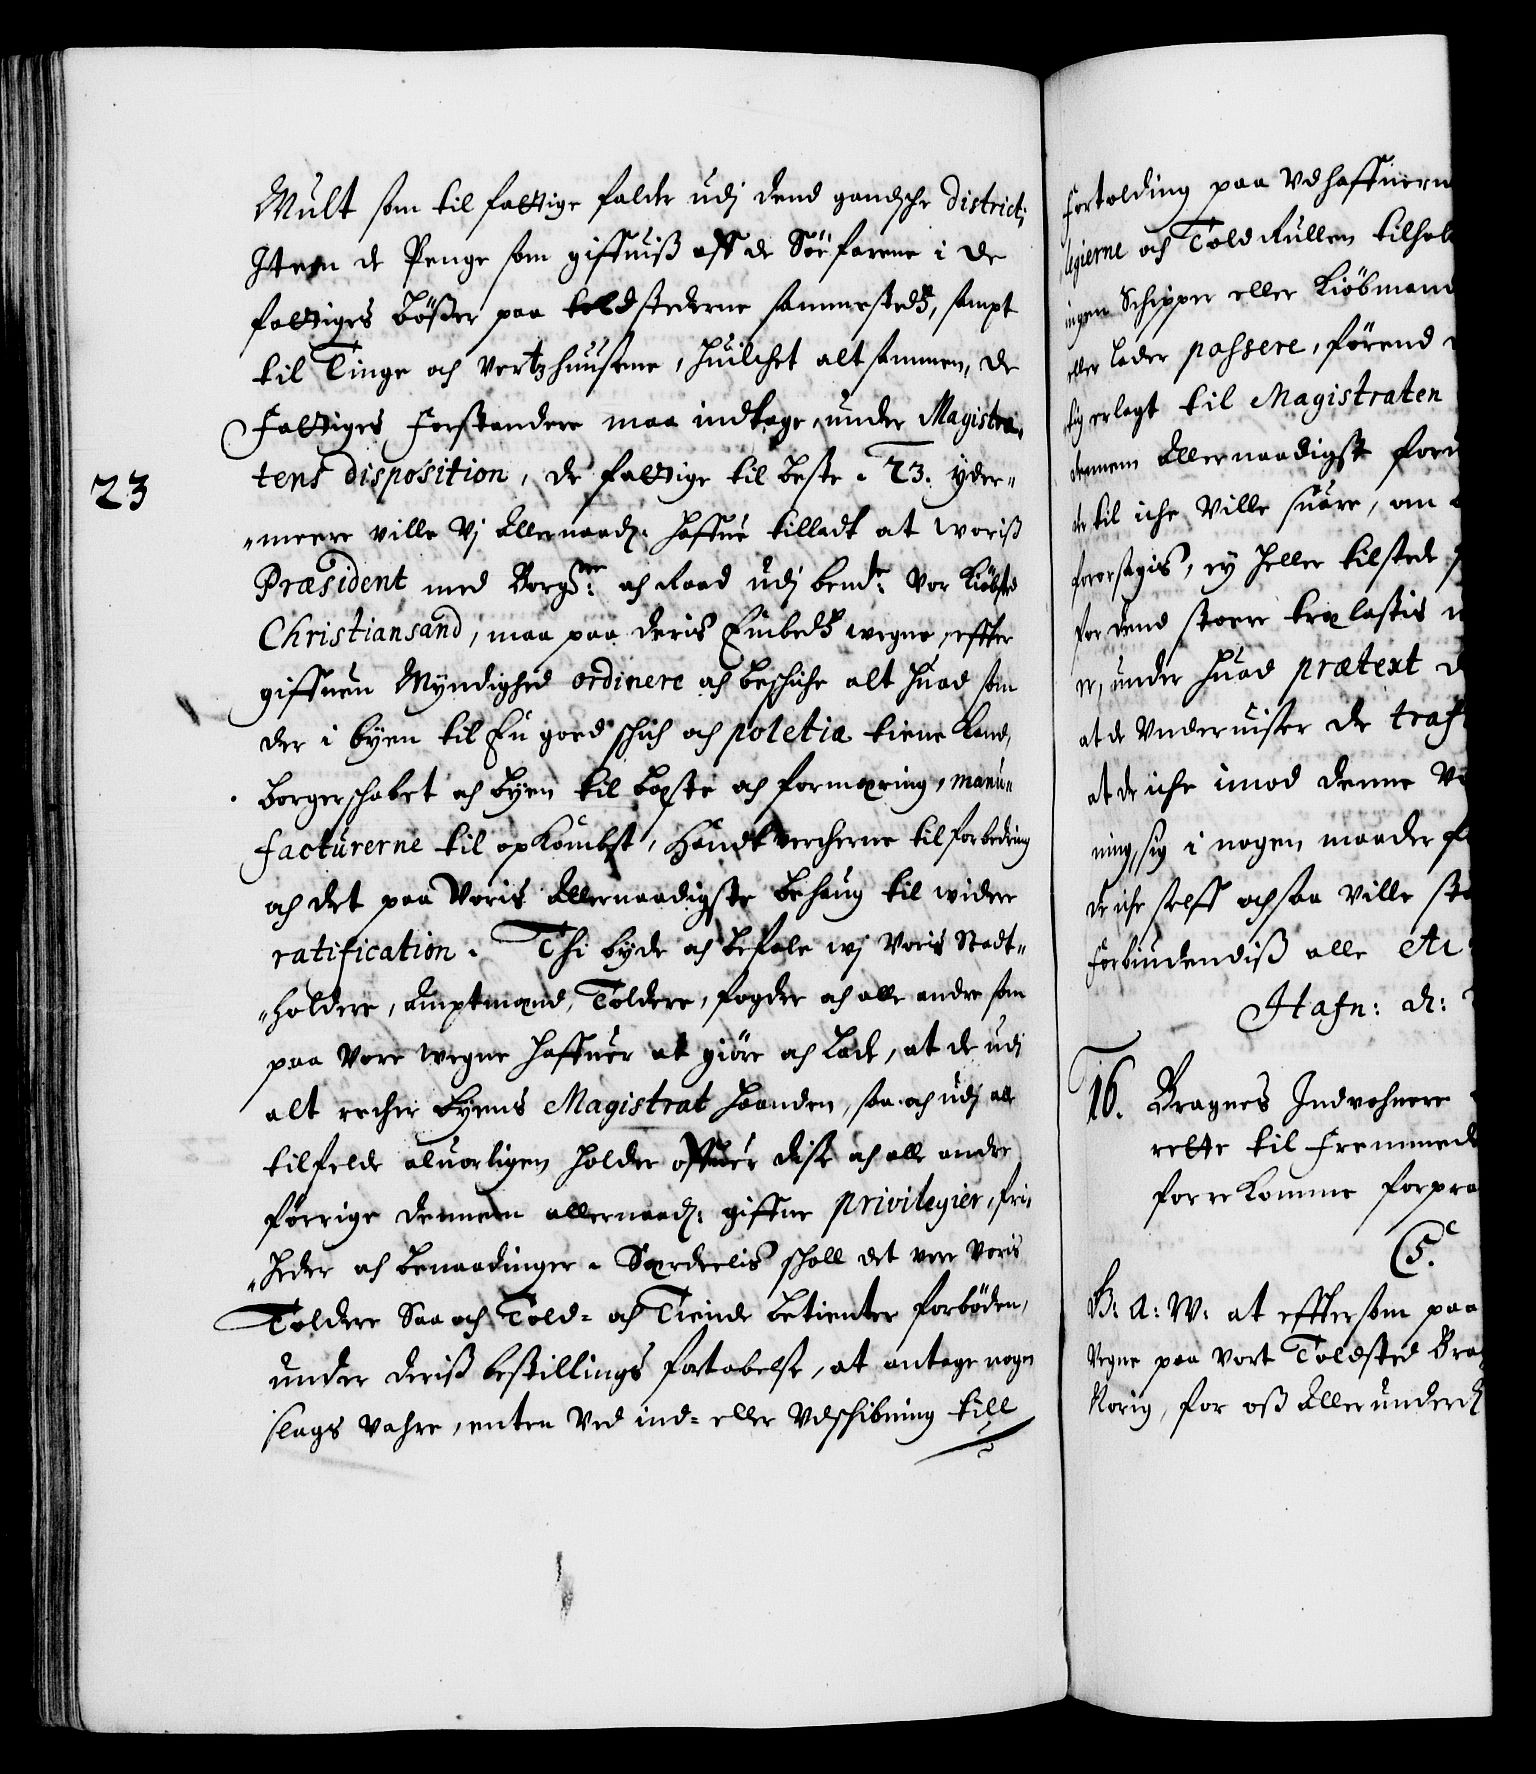 Mult som til fattige falder udj dend gandsche district,
Item de Penge som giffuiß aff de Söefarene i de
fattiges Bößer paa toldstederne sammesteds, sampt
til Tinge och Vertzhuusene, huilchet alt sammen, de
Fattiges Forstandere maa indtage, under Magistra-
tens disposition, de fattige til beste. 23. yder-
23
meere ville Vj Allernaad: haffue tilladt at woris
Præsident med Borgm: och Raad udj bem:te Vor Kiöbsted
Christiansand, maa paa deris Embeds wegne, effter
giffuen Myndighed ordinere och beschiche alt huad som
der i byen til En goed schich och poletia tiene Kand,
borgerschabet och byen til beste och formering, manu-
facturerne til opkombst, Handtvercherne til forbedring
och det paa Voris Allernaadigste behaug til widere
ratification. Thi byde och befale wj Voris Stadt-
holdere, Amptmænd, Toldere, fogder och alle andre som
paa Vore wegne haffuer at giöre och lade, at de udj
alt recher byens Magistrat haanden, saa och udj alle
tilfelde aluorligen holder offuer disse och alle andre
forrige dennem allernaad: giffne privilegier, fri-
heder och benaadinger. Særdeelis schall det vere Voris
Toldere Saa och Told- och Tiende betienter forböden,
under deriß bestillings fortabelse, at antage nogen
slags vahre, enten Ved ind- eller Udschibning till
fortolding paa Udhaffnerne
legierne och Told Rullen tilhol
ingen Schipper eller Kiöbmand
eller lader passere, förend
lig erlagt til Magistraten
dennem Allernaadigst for
der til iche Ville suare, om
forersagis, ey heller tilstede
for dend större træ lastis
er, under huad prætext
at de Underuiser de
at de iche imod denne
ning, sig i nogen maader
de iche selff ochsaa Ville
Forbiudendiß alle
Hafn: d:
16. Bragnes Indvohnere
rette til fremmede
forrekomme
C5.
G: A: W: at effter som paa
Vegne paa Vort Toldsted
Norig, for oß Allerunderd